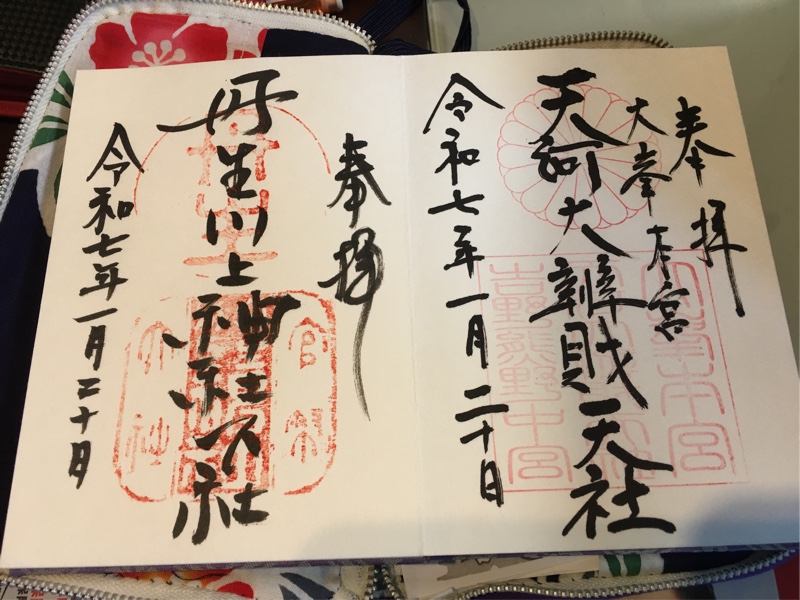 奉拝
大峯本宮
天河大辨財天社
吉野熊野中宮
令和七年一月二十日
奉拝
官幣
丹生川上神社下社
大社
令和七年一月二十日